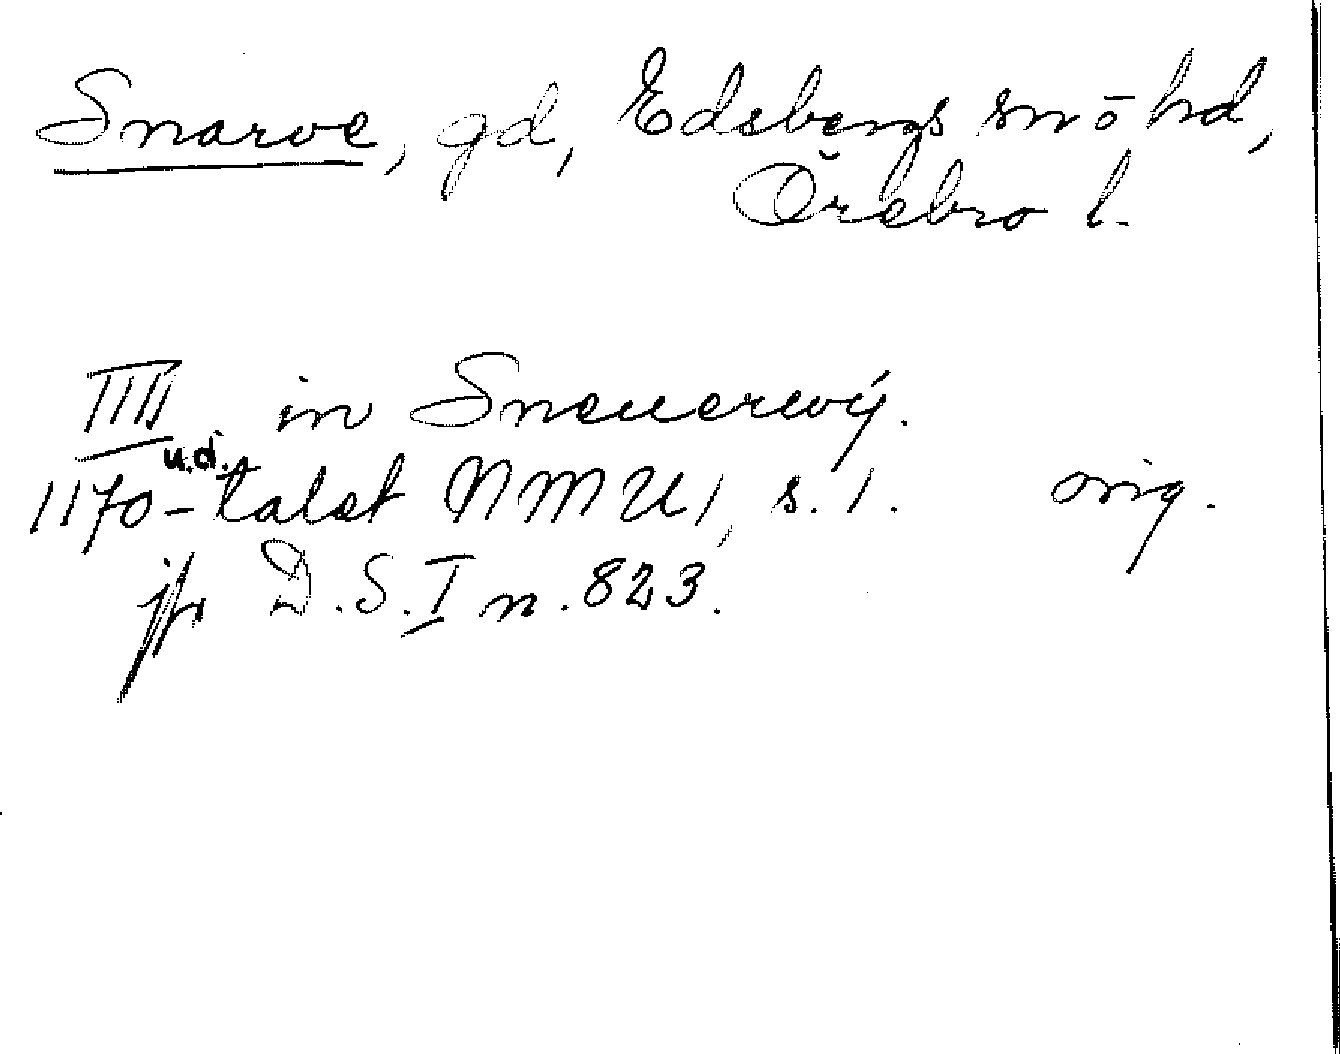 Snarve, gd, Edsbergs sn o hd,
Örebro l.
IIII in Sneuerwy.
u.d.
1170-talet NMU 1, s. 1. orig.
jfr D.S. I n. 823.